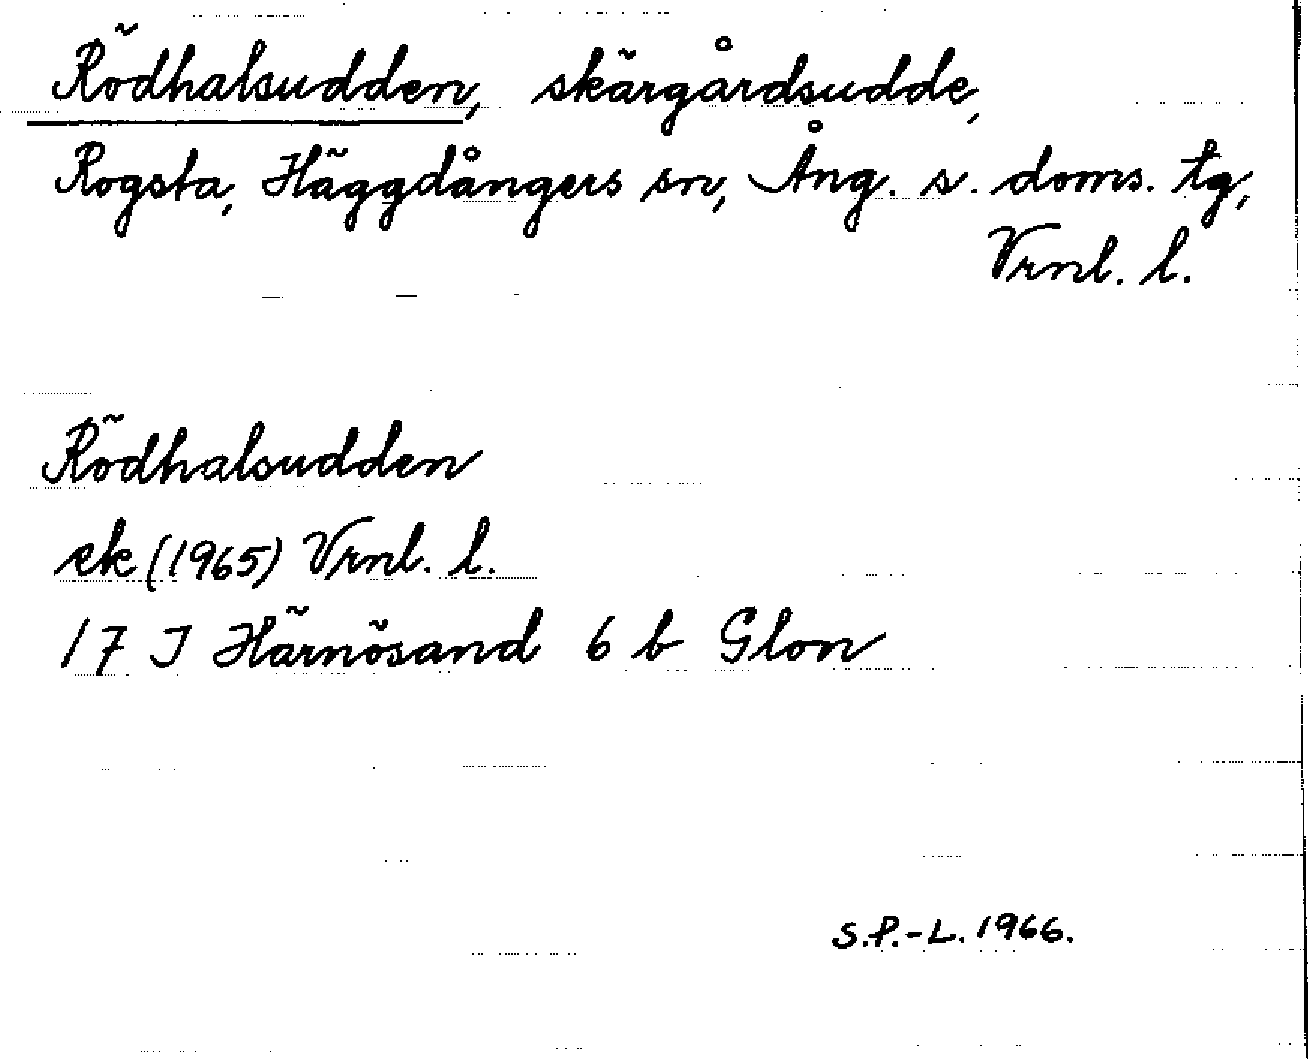 Rödhalsudden, skärgårdsudde,
Rogsta, Häggdångers sn, Ång. s. doms. tg,
Vrnl. l.
Rödhalsudden
ek (1965) Vrnl. l.
17 I Härnösand 6 b Glon
S.P.-L. 1966.